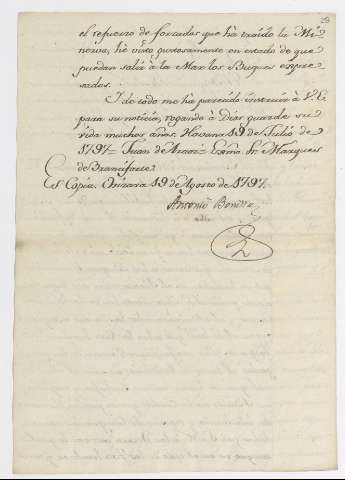 el refuerzo de forzados que ha traido la Mi-
nerva, hé visto gustosamente en estado de que
puedan salir à la Mar los Buques expre-
sados.
I de todo me ha parecido instruir à V.E.
para su noticia, rogando à Dios guarde su
vida muchos años. Havana 19 de Julio de
1797. Juan de Araoz. Exmo. Sr. Marques
de Branciforte.
Es Copia. Orizava 19 de Agosto de 1797.
Antonio Bonilla